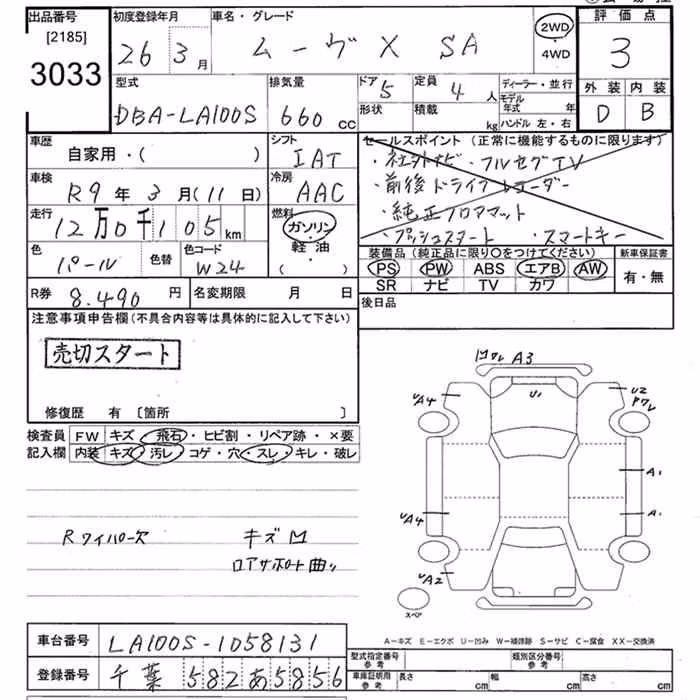 出品番号 初度登録年月 車名・グレード 評価点
[2185]
3033 26 3月 ムーヴX SA 2WD・4WD 3
外装 内装
D B
型式 排気量 ドア 定員 ディーラー・並行
DBA-LA100S 660cc 5 4人 モデル年式 年
形状 積載 kg ハンドル 左・右
車歴 シフト セールスポイント (正常に機能するものに限ります)
自家用・( ) IAT ・社外ナビ ・フルセグTV
車検 冷房 ・前後ドライブレコーダー
R9年3月(11日) AAC ・純正フロアマット
走行 燃料 ・プッシュスタート ・スマートキー
12万0千105km ガソリン・軽・油・( )
色 色替 色コード 装備品 (純正品に限り○をつけてください) 新車保証書
パール W24 PS PW ABS エアB AW 有・無
SR ナビ TV カワ
R券 8.490円 名変期限 月 日 後日品
注意事項申告欄(不具合内容等は具体的に記入して下さい)
売切スタート
修復歴 有 [箇所 ]
検査員 FW キズ・飛石・ヒビ割・リペア跡・×要
記入欄 内装 キズ・汚レ・コゲ・穴・スレ・キレ・破レ
Rワイパー欠 キズM
ロアサポート曲リ
A3
U1
UA4 U2
ワレ
A1
UA4 A1
UA2
スペア
A-キズ E-エクボ U-凹み W-補修跡 S-サビ C-腐食 XX-交換済
車台番号 LA100S-1058131 型式指定番号 参考 類別区分番号 参考
登録番号 千葉 582あ5856 車庫証明用 参考 長さ cm 幅 cm 高さ cm